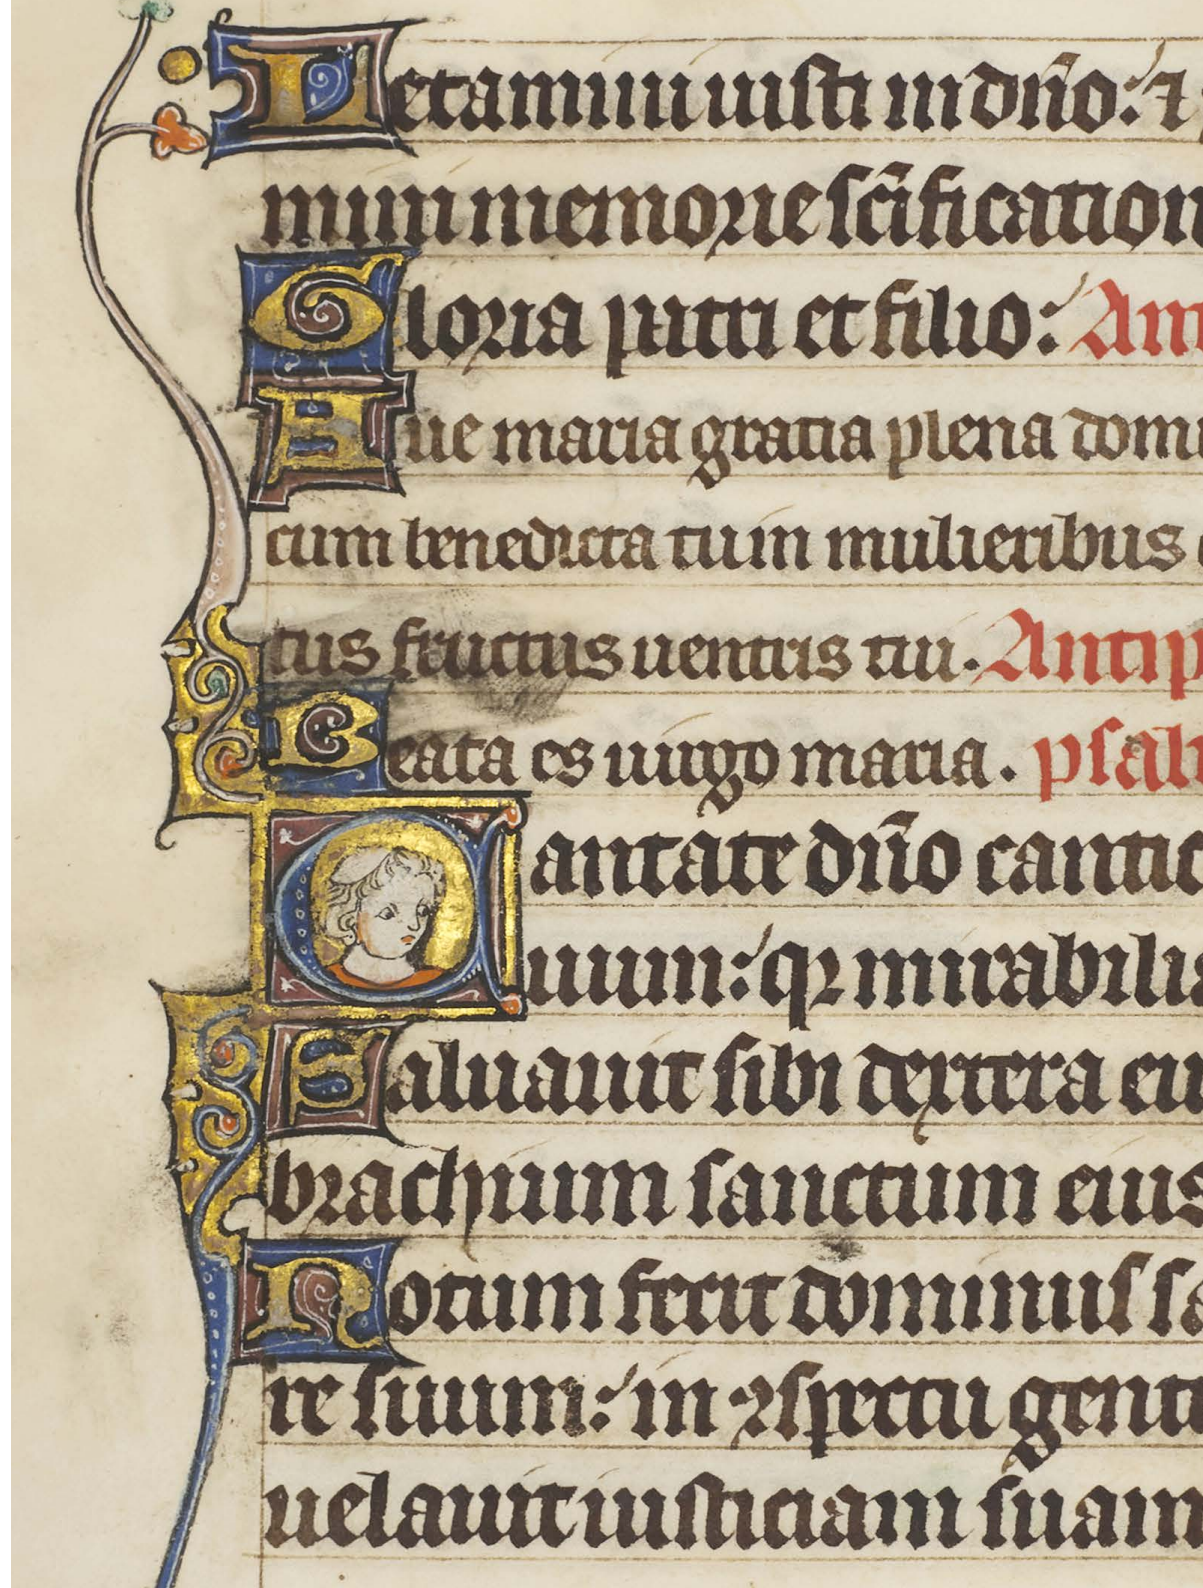 Letamini iusti in dño: ⁊
mini memorie scĩfication
Gloria patri et filio: Ant
Aue maria gratia plena domi
cum benedicta tu in mulieribus
tus fructus uentris tui. Antip
Beata es uirgo maria. psal
Cantate dño cantic
uum: qꝛ mirabilia
Saluauit sibi dextera eiu
brachium sanctum eius
Notum fecit dominus sa
re suum: in ꝯspectu genti
uelauit iusticiam suam